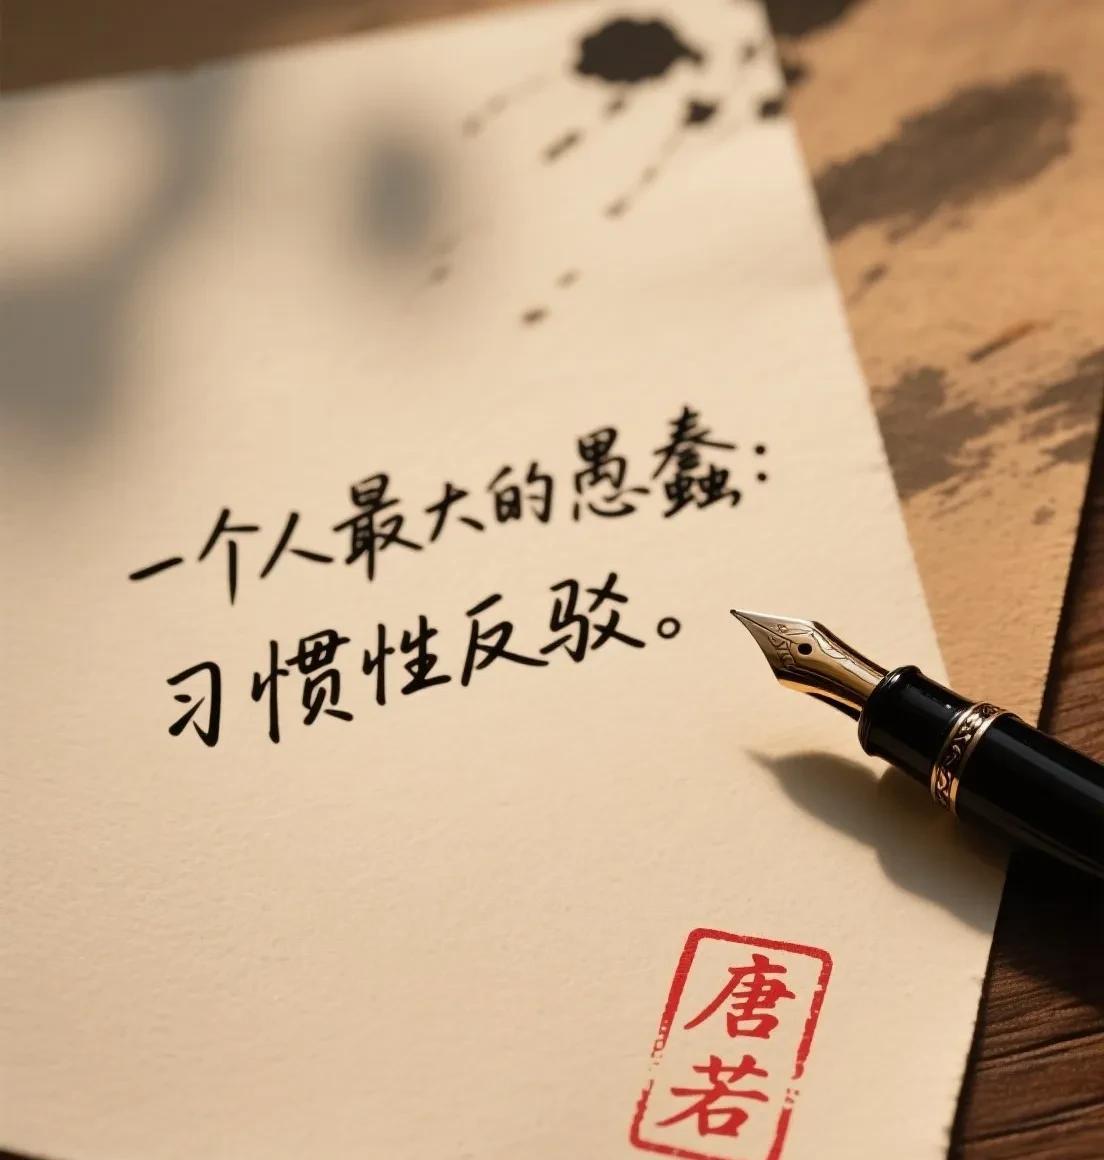 一个人最大的愚蠢：
习惯性反驳。
唐
若